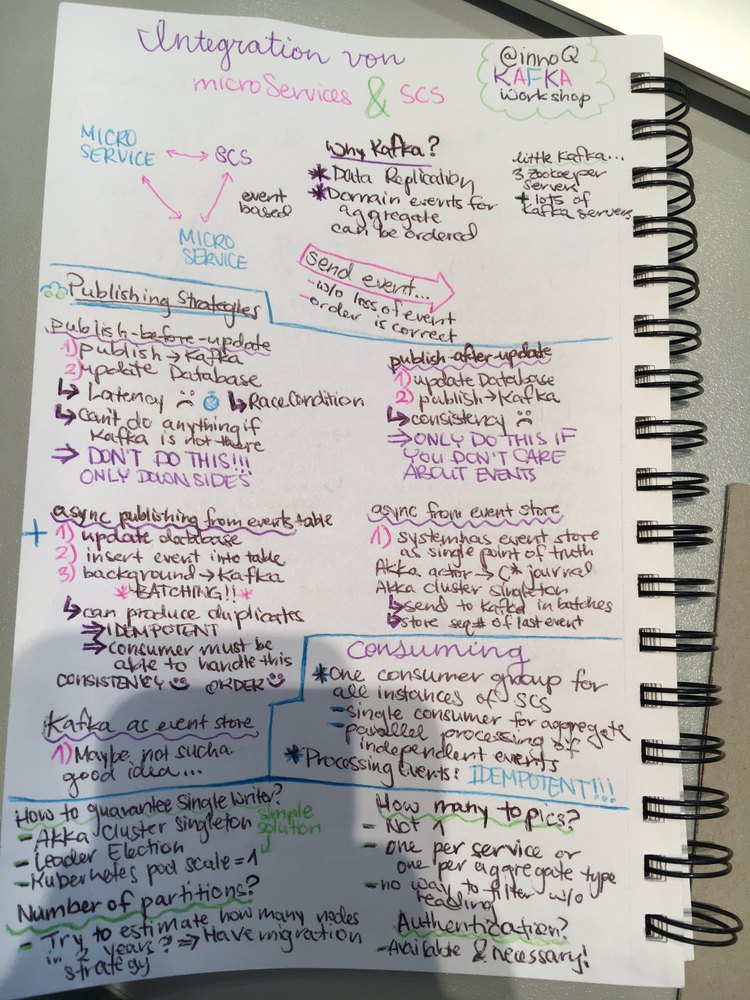 Integration von
microServices & SCS
@innoQ
KAFKA
workshop
MICRO
SERVICE
SCS
event
based
MICRO
SERVICE
Why Kafka?
* Data Replication
* Domain events for
aggregate
can be ordered
little Kafka...
3 zookeeper
servers
+ lots of
Kafka servers
send event...
- w/o loss of event
- order is correct
Publishing Strategies
publish-before-update
1) publish → Kafka
2) update Database
↳ Latency ☹ ↳ Race Condition
↳ Can't do anything if
Kafka is not there
⇒ DON'T DO THIS!!!
ONLY DOWNSIDES
publish-after-update
1) update Database
2) publish → Kafka
↳ consistency ☹
⇒ ONLY DO THIS IF
YOU DON'T CARE
ABOUT EVENTS
+ async publishing from events table
1) update database
2) insert event into table
3) background → Kafka
* BATCHING!! *
↳ can produce duplicates
⇒ IDEMPOTENT
⇒ consumer must be
able to handle this
CONSISTENCY ☺ ORDER ☺
async from event store
1) system has event store
as single point of truth
Akka actor → C* journal
Akka cluster singleton
↳ send to Kafka in batches
↳ store seq# of last event
Kafka as event store
1) Maybe not such a
good idea...
Consuming
* One consumer group for
all instances of SCS
- single consumer for aggregate
- parallel processing of
independent events
* Processing Events: IDEMPOTENT!!!
How to guarantee Single Writer?
- Akka Cluster Singleton
- Leader Election
- Kubernetes pod scale = 1
simple
solution
Number of partitions?
- Try to estimate how many nodes
in 2 years? ⇒ Have migration
strategy
How many topics?
- Not 1
- one per service or
one per aggregate type
- no way to filter w/o
reading
Authentication?
- Available & necessary!